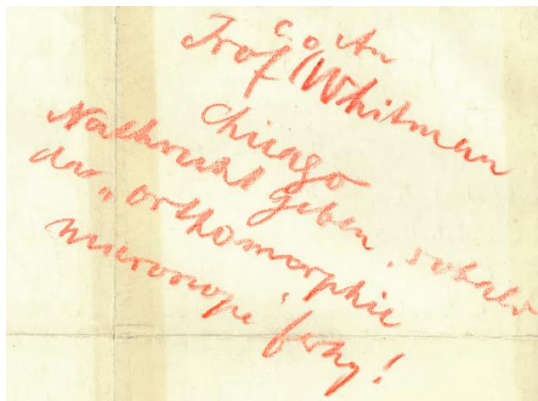 C. O. An
Prof Whitman
Chicago
Nachricht geben, sobald
das „orthomorphic
microscope" fertig!